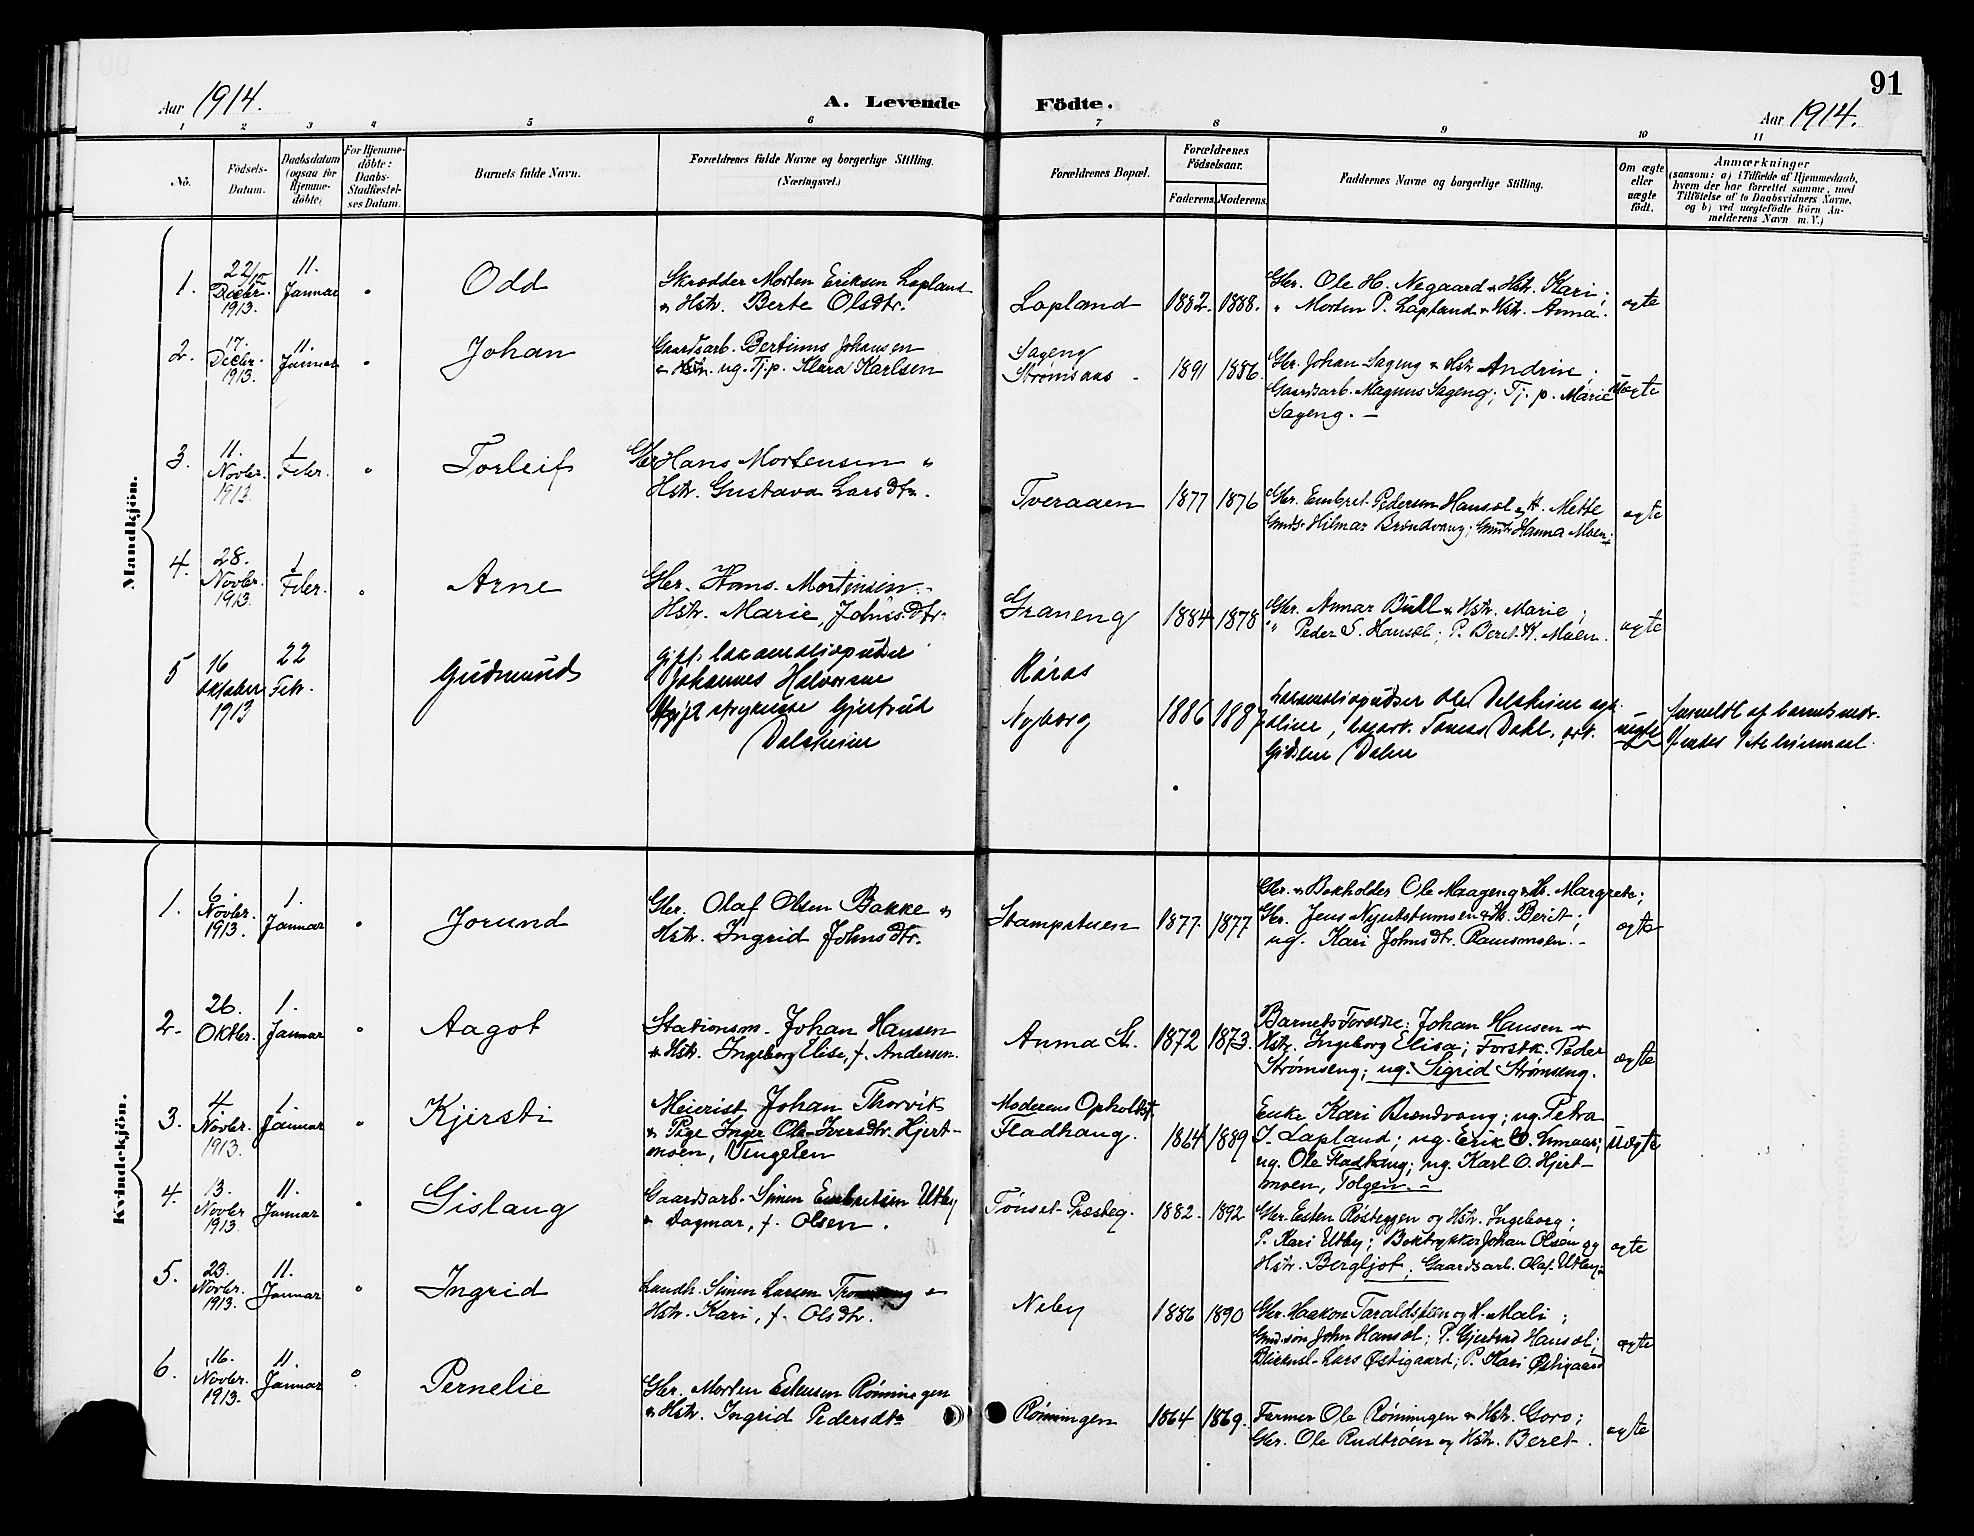 91
Aar 1914.
A. Levende
Födte.
Aar 1914.
1 2 3 4 5 6 7 8 9 10 11
No.
Födsels-
Datum.
Daabsdatum
(ogsaa for
Hjemme-
döbte)
For Hjemme-
döbte:
Daabs-
Stadfæstel-
ses Datum.
Barnets fulde Navn.
Forældrenes fulde Navne og borgerlige Stilling.
(Næringsvei.)
Forældrenes Bopæl.
Forældrenes
Födselsaar.
Faderens. Moderens.
Faddernes Navne og borgerlige Stilling.
Om ægte
eller
uægte
födt.
Anmærkninger
(saasom: a) i Tilfælde af Hjemmedaab,
hvem der har forrettet samme, med
Tilföielse af to Daabsvidners Navne.
og b) ved uægtefödte Börn An-
melderens Navn m. V.)
Mandkjön.
1.
22/10
Decbr.
1913.
11.
Januar
"
Odd
Skrædder Morten Eriksen Lapland
& Hstr. Berte Olsdtr.
Lapland
1882. 1888.
Gbr. Ole H. Negaard & Hstr. Kari;
" Morten P. Lapland & Hstr. Anna.
ægte
2.
17.
Decbr.
1913.
11.
Januar
"
Johan
Gaardsarb. Bertinus Johansen
ug. Tj.p. Klara Karlsen
Sageng
Strømsaas -
1891 1886.
Gbr. Johan Sageng & Hstr Andrin;
Gaardsarb. Magnus Sageng; Tj. p. Marie
Sageng. -
Uægte
3.
11.
Novbr.
1913.
1
Febr.
"
Torleif
Gbr Hans Mortensen "
Hstr. Gustava Larsdtr.
Tveraaen
1877 1876
Gbr. Embret Pedersen Hansøl & H. Mette
Gmds. Hilmar Brendvang; Gmdtr Hanna Moen.
ægte
4.
28.
Novbr.
1913.
1
Febr.
"
Arne
Gbr. Hans Mortensen
Hstr. Marie, Johnsdtr.
Graneng
1884 1878
Gbr. Annar Bull & Hstr. Marie;
" Peder S. Hansøl; P. Beret K. Moen.
ægte
5
16
Oktober
1913
22
Febr.
Gudmund
Gift. lokomotivpudser
Johannes Halvorsen
Ugift strykerske Gjertrud
Dalsheim
Røros
Nyborg
1886 1887
Lokomotivpudser Ole Dalsheim og
Oline, Tomas Dahl,
Dalen
uegte
Anmeldt af barnets mor.
Kvindekjön.
1.
6.
Novbr.
1913.
1.
Januar
"
Jorund
Gbr. Olaf Olsen Bakke &
Hstr. Ingrid Johnsdtr.
Stampstuen
1877. 1877
Gbr. & Bokholder Ole Maageng & H. Margrete;
Gbr. Jens Nyutstumoen & H. Berit;
ug. Kari Johnsdtr. Ramsmoen. -
ægte
2.
26.
Oktbr.
1.
Januar
"
Aagot
Stationsm. Johan Hansen
& Hstr. Ingeborg Elise, f. Andersen.
Auma St.
1872 1873.
Barnets Foreldre: Johan Hansen &
Hstr. Ingeborg Elisa; Forstk. Peder
Strømseng; ug. Sigrid Strømseng.
ægte
3.
4
Novbr.
1913.
1
Januar
"
Kjersti
Meierist Johan Thorvik
& Pige Inger Ole-Iversdtr. Hjert-
moen, Vingelen
Moderens Opholdst.
Fladhaug.
1864 1889
Enke Kari Brendvang; ug. Petra
J. Lapland; ug. Erik O. Enmoen;
ug. Ole Fladhaug; ug. Karl O. Hjert-
moen, Tolgen. -
Uægte
4.
13.
Novbr
1913.
11.
Januar
"
Gislaug
Gaardsarb. Simen Embretsen Utby
& Dagmar, f. Olsen.
Tönset Præsteg.
1882. 1892
Gbr. Esten Røsteggen og Hstr. Ingeborg;
P. Kari Utby; Boktrykker Johan Olsen og
Hstr. Bergljot; Gaardsarb. Olaf Utby.
ægte
5.
23.
Novbr.
1913.
11.
Januar
"
Ingrid
Landh. Simen Larsen
Hstr. Kari, f. Olsdtr.
Neby
1886 1890
Gbr. Haakon Taraldsteen og H. Mali;
Gmd.søn John Hansøl; P. Gjertrud Hansøl;
Blikensl. Lars Østigaard; P. Kari Østigaard
ægte
6.
16.
Novbr.
1913.
11.
Januar
"
Pernelie
Gbr. Morten Estensen Rønningen
& Hstr. Ingrid Pedersdtr
Rønningen
1864 1869.
Farmer Ole Rønningen & Hstr. Goro;
Gbr. Ole Rudtrøen og Hstr. Beret.
ægte